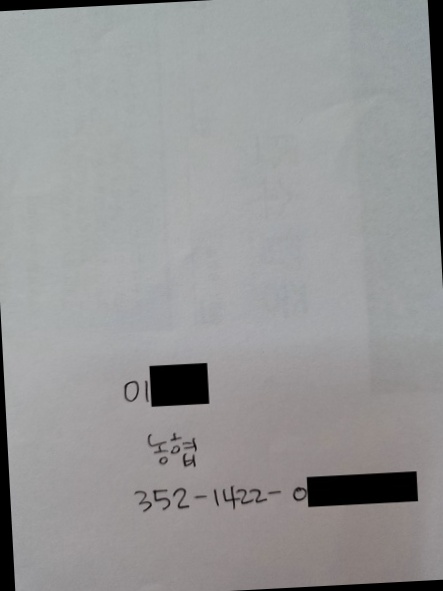 이
농협
352-1422-0